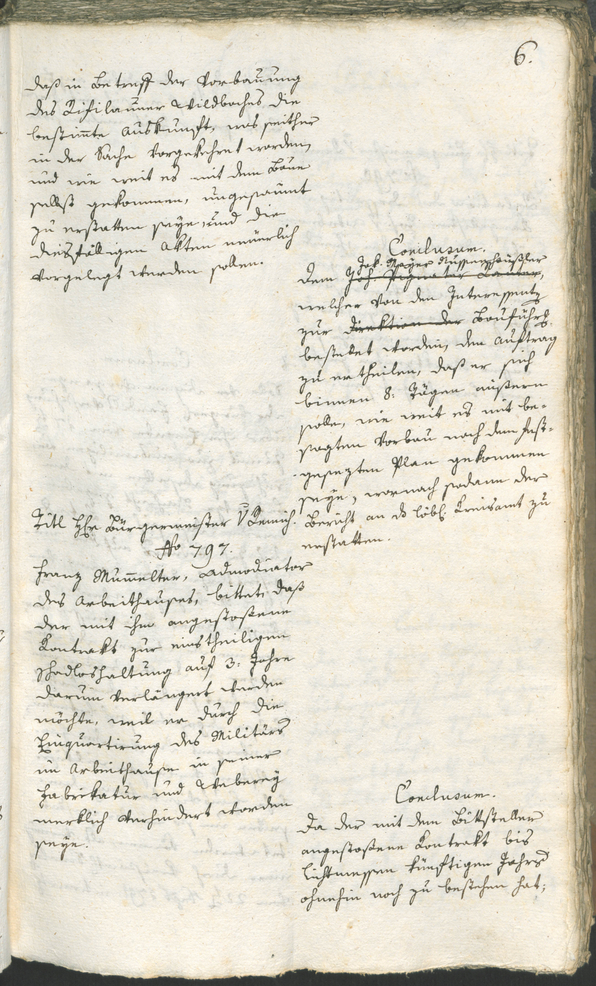 6.
daß in Betreff der Vorbauung
des Rifilauner Wildbaches die
bestimte Auskunft, was seither
in der Sache vorgekehret worden,
und wie weit es mit dem Baue
selbst gekommen, ungesäumt
zu erstatten seye, und die
diesfälligen Akten neuerlich
vorgelegt werden sollen.
Conclusum.
Jak. Mayer Nussenhäußler
Dem Joh.
welcher von den Interessentz
zur Direktion der Bauführg
bestelet worden, den Auftrag
zu ertheilen, daß er sich
binnen 8: Tägen äußern
solle, wie weit es mit be-
sagten Vorbau nach dem fest-
gesezten Plan gekommen
seye, wornach sodann der
Bericht an das löbl. Kreisamt zu
erstatten.
Titl Hr Bürgermeister
No 797.
Franz Mumelter, Admodiator
des Arbeithauses, bittet, daß
der mit ihm angestoßene
Kontrakt zur einstheiligen
Schadloshaltung auf 3: Jahre
darum verlängert werden
möchte, weil er durch die
Einquartirung des Militärs
im Arbeithause in seiner
Fabrikatur und Weberey
merklich verhindert worden
seye.
Conclusum.
Da der mit dem Bittsteller
angestoßene Kontrakt bis
Lichtmessen künftigen Jahrs
ohnehin noch zu bestehen hat;